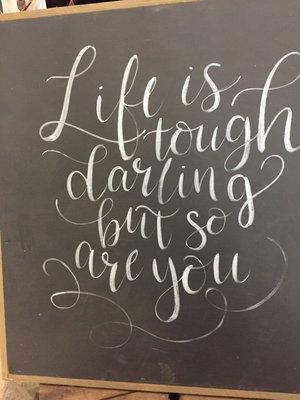 Life is
tough
darling
but so
are you